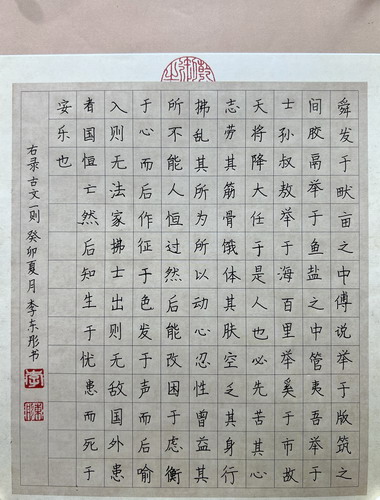 舜发于畎亩之中傅说举于版筑之
间胶鬲举于鱼盐之中管夷吾举于
士孙叔敖举于海百里举奚于市故
天将降大任于是人也必先苦其心
志劳其筋骨饿体其肤空乏其身行
拂乱其所为所以动心忍性曾益其
所不能人恒过然后能改困于虑衡
于心而后作征于色发于声而后喻
入则无法家拂士出则无敌国外患
者国恒亡然后知生于忧患而死于
安乐也
右录古文一则 癸卯夏月 李东彤书